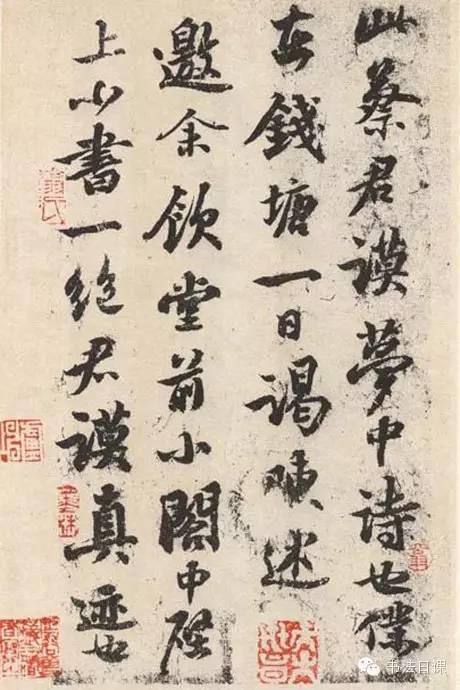 此蔡君謨夢中詩也僕
在錢塘一日謁陳述
邀余飲堂前小閣中壁
上小書一絕君謨真迹也
书法日课